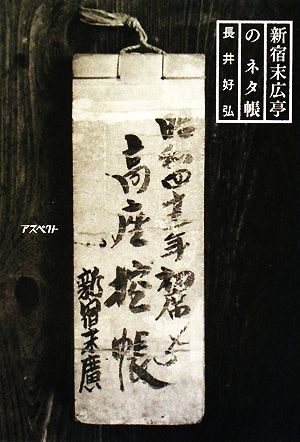 新宿末広亭
のネタ帳
長井好弘
アスペクト
昭和四十三年初席より
高座控帳
新宿末廣